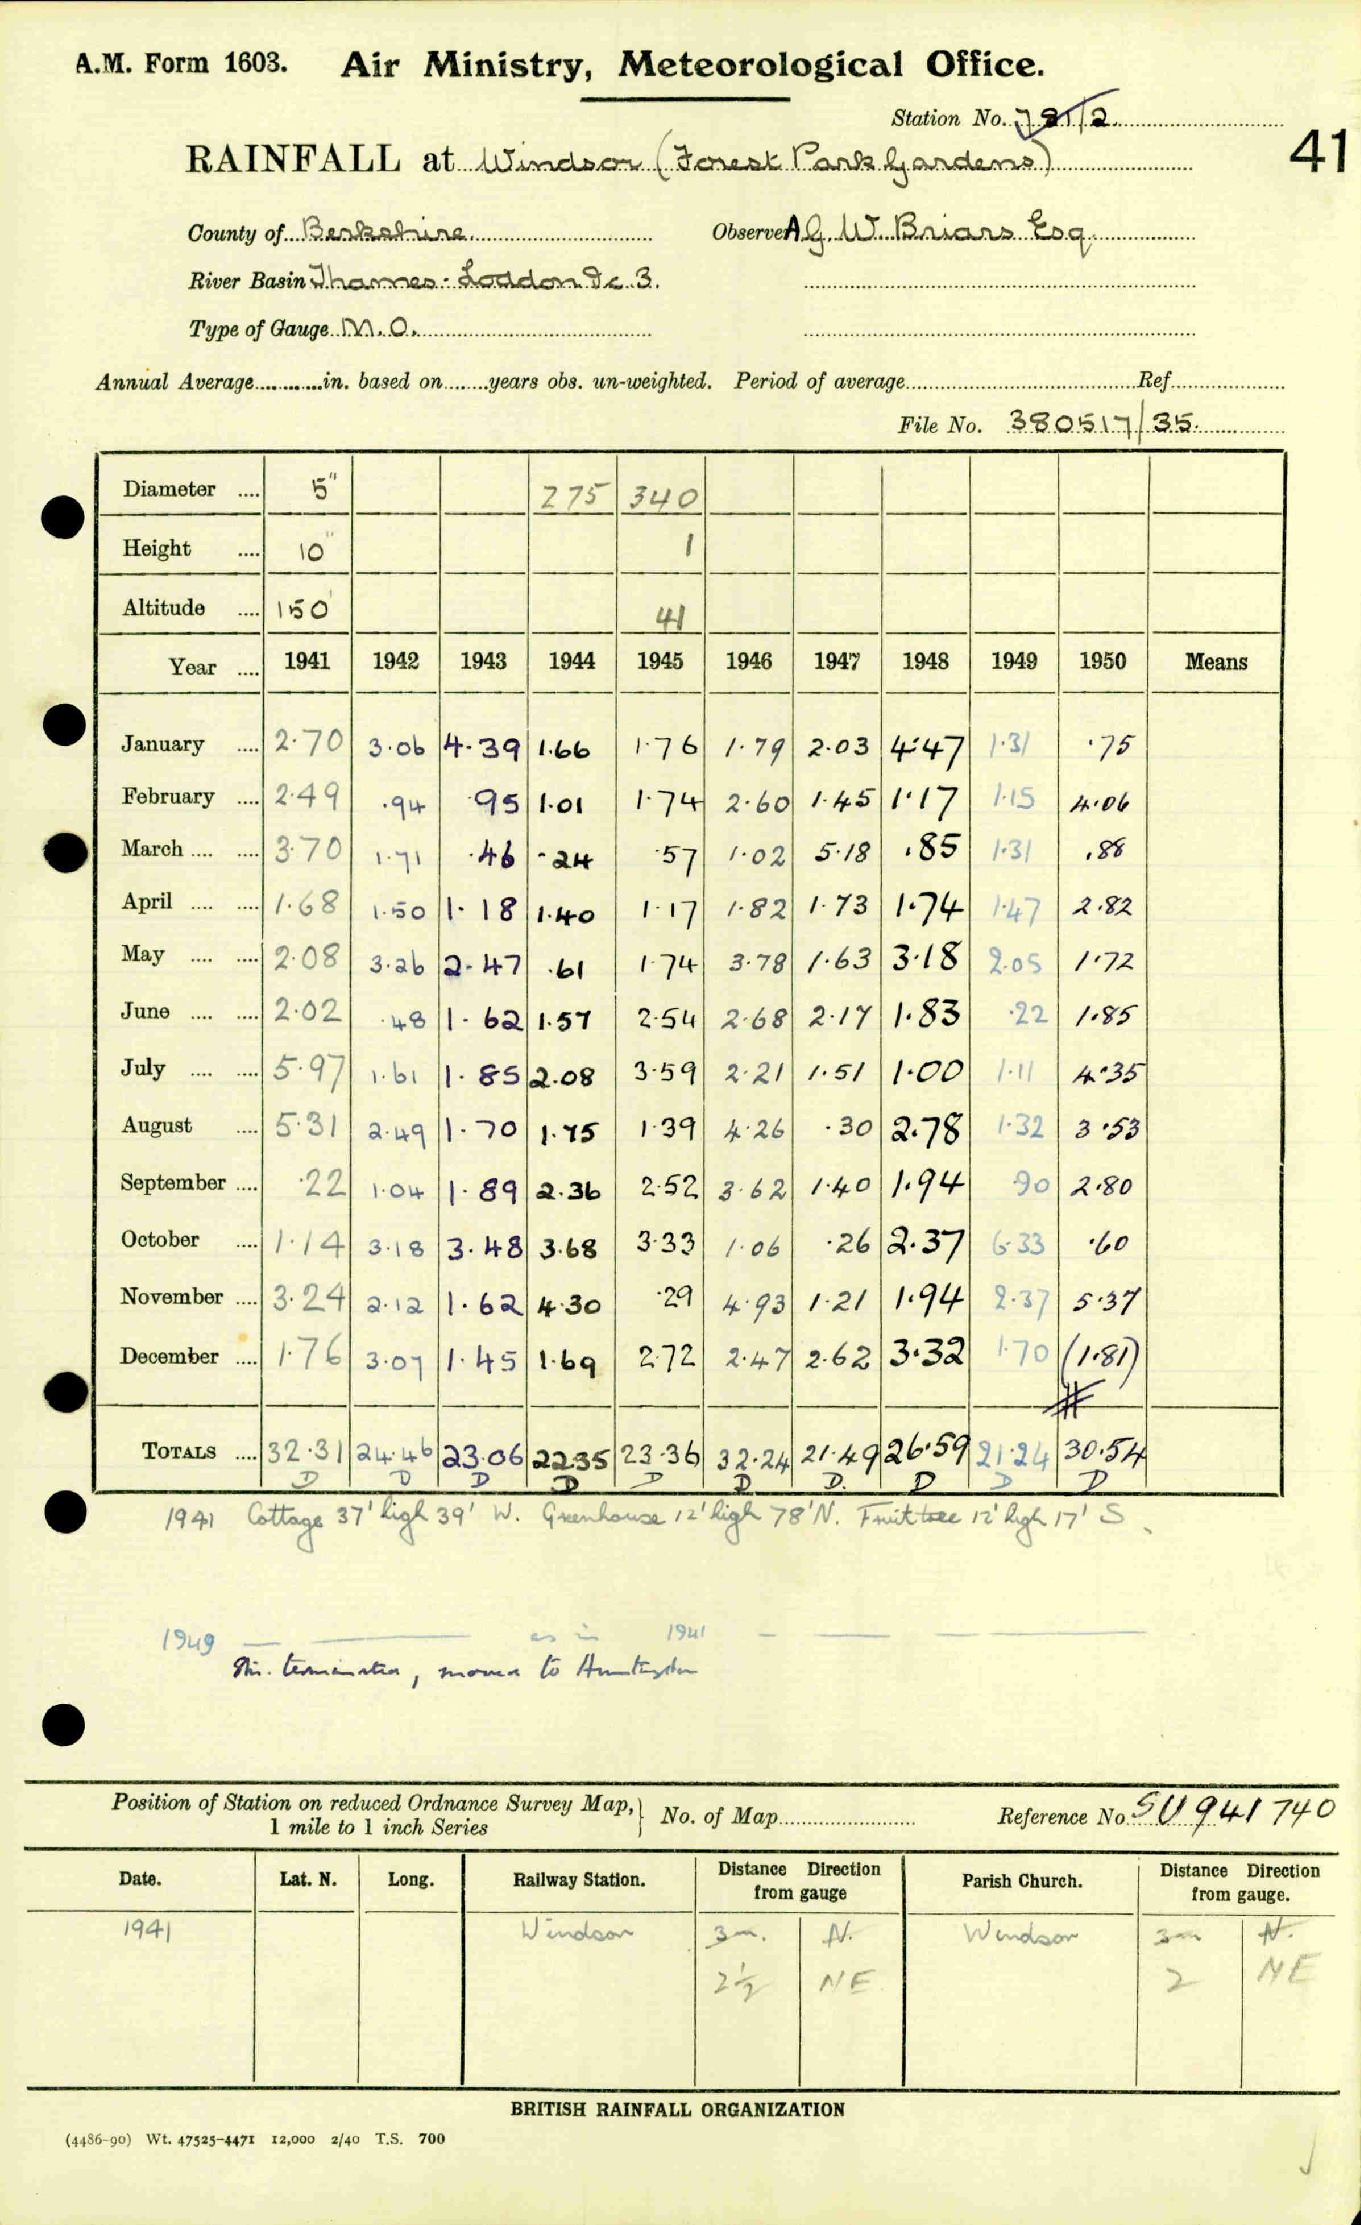 A.M. Form 1603. Air Ministry, Meteorological Office.
Station No. 781/2.
41
RAINFALL at Windsor (Forest Park Gardens)
County of Berkshire. Observer A G. W. Briars Esq.
River Basin Thames - Loddon &c 3.
Type of Gauge M.O.
Annual Average in. based on years obs. un-weighted. Period of average Ref
File No. 380517/35.
Diameter .... 5" 275 340
Height .... 10" 1
Altitude .... 150' 41
Year .... 1941 1942 1943 1944 1945 1946 1947 1948 1949 1950 Means
January .... 2.70 3.06 4.39 1.66 1.76 1.79 2.03 4.47 1.31 .75
February .... 2.49 .94 .95 1.01 1.74 2.60 1.45 1.17 1.15 4.06
March .... .... 3.70 1.71 .46 .24 .57 1.02 5.18 .85 1.31 .88
April .... .... 1.68 1.50 1.18 1.40 1.17 1.82 1.73 1.74 1.47 2.82
May .... .... 2.08 3.26 2.47 .61 1.74 3.78 1.63 3.18 2.05 1.72
June .... .... 2.02 .48 1.62 1.57 2.54 2.68 2.17 1.83 .22 1.85
July .... .... 5.97 1.61 1.85 2.08 3.59 2.21 1.51 1.00 1.11 4.35
August .... 5.31 2.49 1.70 1.75 1.39 4.26 .30 2.78 1.32 3.53
September .... .22 1.04 1.89 2.36 2.52 3.62 1.40 1.94 .90 2.80
October .... 1.14 3.18 3.48 3.68 3.33 1.06 .26 2.37 6.33 .60
November .... 3.24 2.12 1.62 4.30 .29 4.93 1.21 1.94 2.37 5.37
December .... 1.76 3.07 1.45 1.69 2.72 2.47 2.62 3.32 1.70 (1.81)
TOTALS .... 32.31 24.46 23.06 22.35 23.36 32.24 21.49 26.59 21.24 30.54
D D D D D D D. D D D
1941 Cottage 37' high 39' W. Greenhouse 12' high 78' N. Fruit tree 12' high 17' S.
1949 — — as in 1941 — — — —
Stn. terminated, moved to
Position of Station on reduced Ordnance Survey Map, 1 mile to 1 inch Series } No. of Map Reference No. SU 941 740
Date. Lat. N. Long. Railway Station. Distance Direction from gauge Parish Church. Distance Direction from gauge.
1941 Windsor 3m. N. Windsor 3m N.
2½ NE 2 NE
BRITISH RAINFALL ORGANIZATION
(4486-90) Wt. 47525-4471 12,000 2/40 T.S. 700